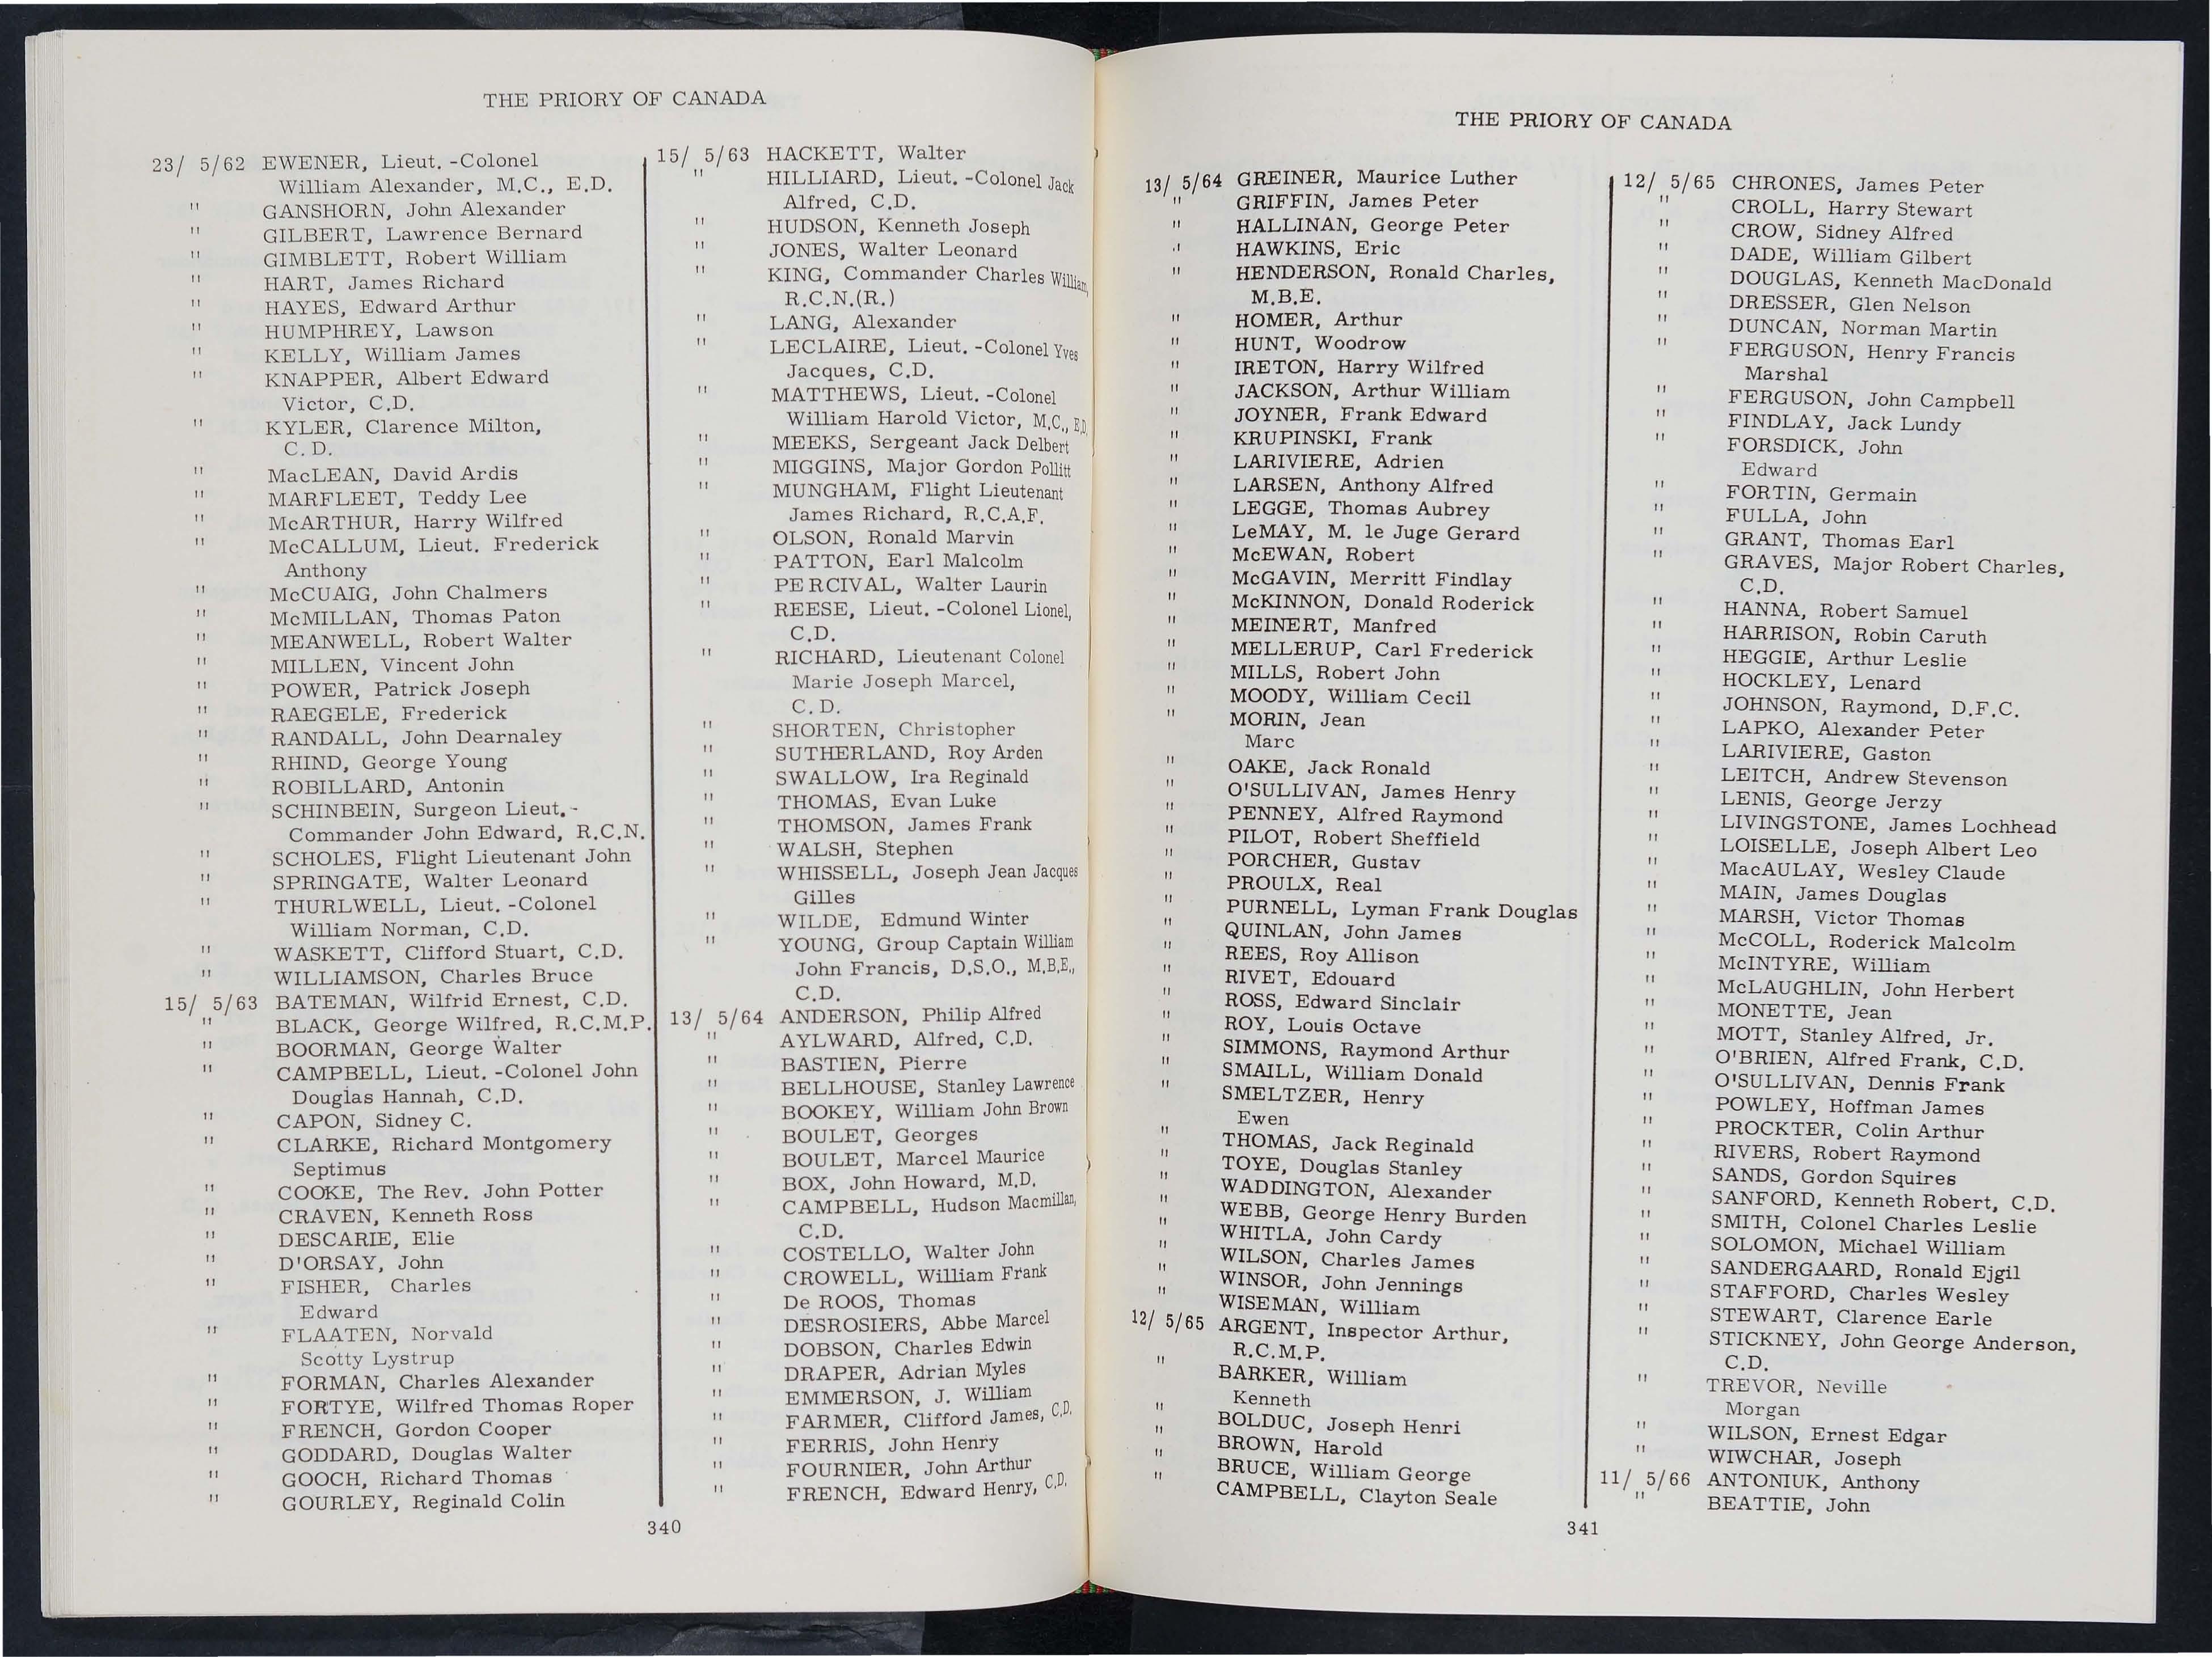 THE PRIORY OF CANADA
23/ 5/62 EWENER, Lieut. -Colonel
William Alexander, M.C., E.D.
" GANSHORN, John Alexander
" GILBERT, Lawrence Bernard
" GIMBLETT, Robert William
" HART, James Richard
" HAYES, Edward Arthur
" HUMPHREY, Lawson
" KELLY, William James
" KNAPPER, Albert Edward
Victor, C.D.
" KYLER, Clarence Milton,
C.D.
" MacLEAN, David Ardis
" MARFLEET, Teddy Lee
" McARTHUR, Harry Wilfred
" McCALLUM, Lieut. Frederick
Anthony
" McCUAIG, John Chalmers
" McMILLAN, Thomas Paton
" MEANWELL, Robert Walter
" MILLEN, Vincent John
" POWER, Patrick Joseph
" RAEGELE, Frederick
" RANDALL, John Dearnaley
" RHIND, George Young
" ROBILLARD, Antonin
" SCHINBEIN, Surgeon Lieut.-
Commander John Edward, R.C.N.
" SCHOLES, Flight Lieutenant John
" SPRINGATE, Walter Leonard
" THURLWELL, Lieut. -Colonel
William Norman, C.D.
" WASKETT, Clifford Stuart, C.D.
" WILLIAMSON, Charles Bruce
15/ 5/63 BATEMAN, Wilfrid Ernest, C.D.
" BLACK, George Wilfred, R.C.M.P.
" BOORMAN, George Walter
" CAMPBELL, Lieut. -Colonel John
Douglas Hannah, C.D.
" CAPON, Sidney C.
" CLARKE, Richard Montgomery
Septimus
" COOKE, The Rev. John Potter
" CRAVEN, Kenneth Ross
" DESCARIE, Elie
" D'ORSAY, John
" FISHER, Charles
Edward
" FLAATEN, Norvald
Scotty Lystrup
" FORMAN, Charles Alexander
" FORTYE, Wilfred Thomas Roper
" FRENCH, Gordon Cooper
" GODDARD, Douglas Walter
" GOOCH, Richard Thomas
" GOURLEY, Reginald Colin
15/ 5/63 HACKETT, Walter
" HILLIARD, Lieut. -Colonel Jack
Alfred, C.D.
" HUDSON, Kenneth Joseph
" JONES, Walter Leonard
" KING, Commander Charles William,
R.C.N.(R.)
" LANG, Alexander
" LECLAIRE, Lieut. -Colonel Yves
Jacques, C.D.
" MATTHEWS, Lieut. -Colonel
William Harold Victor, M.C., E.D.
" MEEKS, Sergeant Jack Delbert
" MIGGINS, Major Gordon Pollitt
" MUNGHAM, Flight Lieutenant
James Richard, R.C.A.F.
" OLSON, Ronald Marvin
" PATTON, Earl Malcolm
" PERCIVAL, Walter Laurin
" REESE, Lieut. -Colonel Lionel,
C.D.
" RICHARD, Lieutenant Colonel
Marie Joseph Marcel,
C.D.
" SHORTEN, Christopher
" SUTHERLAND, Roy Arden
" SWALLOW, Ira Reginald
" THOMAS, Evan Luke
" THOMSON, James Frank
" WALSH, Stephen
" WHISSELL, Joseph Jean Jacques
Gilles
" WILDE, Edmund Winter
" YOUNG, Group Captain William
John Francis, D.S.O., M.B.E.,
C.D.
13/ 5/64 ANDERSON, Philip Alfred
" AYLWARD, Alfred, C.D.
" BASTIEN, Pierre
" BELLHOUSE, Stanley Lawrence
" BOOKEY, William John Brown
" BOULET, Georges
" BOULET, Marcel Maurice
" BOX, John Howard, M.D.
" CAMPBELL, Hudson Macmillan,
C.D.
" COSTELLO, Walter John
" CROWELL, William Frank
" De ROOS, Thomas
" DESROSIERS, Abbe Marcel
" DOBSON, Charles Edwin
" DRAPER, Adrian Myles
" EMMERSON, J. William
" FARMER, Clifford James, C.D.
" FERRIS, John Henry
" FOURNIER, John Arthur
" FRENCH, Edward Henry, C.D.
340
THE PRIORY OF CANADA
13/ 5/64 GREINER, Maurice Luther
" GRIFFIN, James Peter
" HALLINAN, George Peter
" HAWKINS, Eric
" HENDERSON, Ronald Charles,
M.B.E.
" HOMER, Arthur
" HUNT, Woodrow
" IRETON, Harry Wilfred
" JACKSON, Arthur William
" JOYNER, Frank Edward
" KRUPINSKI, Frank
" LARIVIERE, Adrien
" LARSEN, Anthony Alfred
" LEGGE, Thomas Aubrey
" LeMAY, M. le Juge Gerard
" McEWAN, Robert
" McGAVIN, Merritt Findlay
" McKINNON, Donald Roderick
" MEINERT, Manfred
" MELLERUP, Carl Frederick
" MILLS, Robert John
" MOODY, William Cecil
" MORIN, Jean
Marc
" OAKE, Jack Ronald
" O'SULLIVAN, James Henry
" PENNEY, Alfred Raymond
" PILOT, Robert Sheffield
" PORCHER, Gustav
" PROULX, Real
" PURNELL, Lyman Frank Douglas
" QUINLAN, John James
" REES, Roy Allison
" RIVET, Edouard
" ROSS, Edward Sinclair
" ROY, Louis Octave
" SIMMONS, Raymond Arthur
" SMAILL, William Donald
" SMELTZER, Henry
Ewen
" THOMAS, Jack Reginald
" TOYE, Douglas Stanley
" WADDINGTON, Alexander
" WEBB, George Henry Burden
" WHITLA, John Cardy
" WILSON, Charles James
" WINSOR, John Jennings
" WISEMAN, William
12/ 5/65 ARGENT, Inspector Arthur,
R.C.M.P.
" BARKER, William
Kenneth
" BOLDUC, Joseph Henri
" BROWN, Harold
" BRUCE, William George
" CAMPBELL, Clayton Seale
12/ 5/65 CHRONES, James Peter
" CROLL, Harry Stewart
" CROW, Sidney Alfred
" DADE, William Gilbert
" DOUGLAS, Kenneth MacDonald
" DRESSER, Glen Nelson
" DUNCAN, Norman Martin
" FERGUSON, Henry Francis
Marshal
" FERGUSON, John Campbell
" FINDLAY, Jack Lundy
" FORSDICK, John
Edward
" FORTIN, Germain
" FULLA, John
" GRANT, Thomas Earl
" GRAVES, Major Robert Charles,
C.D.
" HANNA, Robert Samuel
" HARRISON, Robin Caruth
" HEGGIE, Arthur Leslie
" HOCKLEY, Lenard
" JOHNSON, Raymond, D.F.C.
" LAPKO, Alexander Peter
" LARIVIERE, Gaston
" LEITCH, Andrew Stevenson
" LENIS, George Jerzy
" LIVINGSTONE, James Lochhead
" LOISELLE, Joseph Albert Leo
" MacAULAY, Wesley Claude
" MAIN, James Douglas
" MARSH, Victor Thomas
" McCOLL, Roderick Malcolm
" McINTYRE, William
" McLAUGHLIN, John Herbert
" MONETTE, Jean
" MOTT, Stanley Alfred, Jr.
" O'BRIEN, Alfred Frank, C.D.
" O'SULLIVAN, Dennis Frank
" POWLEY, Hoffman James
" PROCKTER, Colin Arthur
" RIVERS, Robert Raymond
" SANDS, Gordon Squires
" SANFORD, Kenneth Robert, C.D.
" SMITH, Colonel Charles Leslie
" SOLOMON, Michael William
" SANDERGAARD, Ronald Ejgil
" STAFFORD, Charles Wesley
" STEWART, Clarence Earle
" STICKNEY, John George Anderson,
C.D.
" TREVOR, Neville
Morgan
" WILSON, Ernest Edgar
" WIWCHAR, Joseph
11/ 5/66 ANTONIUK, Anthony
" BEATTIE, John
341